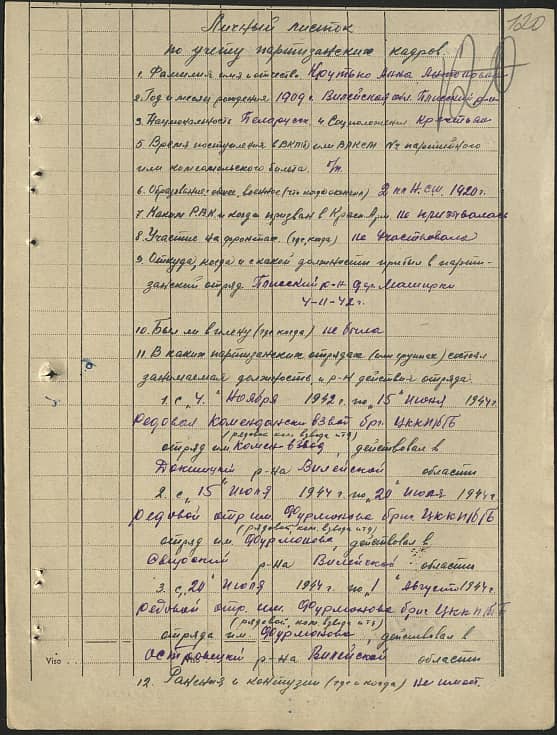 120
Личный листок
по учету партизанских кадров.
120
1. Фамилия имя и отчество Крутько Анна Антоновна
2. Год и месяц рождения 1909 г. Вилейской обл. Плисский р-н
3. Национальность Белоруск. 4 Соцположения Крестьян
5 Время поступления в ВКП/б или ВЛКСМ № партийного
или комсомольского билета. б/п.
6. Образование: общее, военное (что когда окончил) 2 кл. Н.СШ. 1920 г.
7. Каким Р.В.К и когда призван в Красн. Арм. не призывалась
8. Участие на фронтах. (где, когда) не участвовала
9. Откуда, когда и с какой должности прибыл в парти-
занский отряд Плисский р-н дер.
4-11-42 г.
10. Был ли в плену (где когда) не была
11. В каких партизанских отрядах (или группах) состоял
занимаемая должность, и р-н действия отряда.
1. с "4" Ноября 1942 г. по "15" Июня 1944 г.
Редовая Комендански взвод бриг. ЦККП/б/Б
(рядовой, ком. взвода и тд)
отряд им. Комен взвод, действовал в
Докшицкий р-на Вилейской области
2. с "15" Июня 1944 г. по "20" Июля 1944 г
редовой отр им. Фурмонова бриг. ЦККП/б/Б
(рядовой, ком. взвода и тд)
отряд им. Фурмонова, действовал в
Свирский р-на Вилейской области
3. с "20" Июля 1944 г. по "1" Август 1944 г.
редовой отр. им. Фурмонова бриг. ЦККП/б/Б
(рядовой, ком. взвода и тд)
отряда им. Фурмонова, действовал в
Островецкий р-на Вилейской области
Viso
12. Ранения и контузии (где и когда) не имеет.